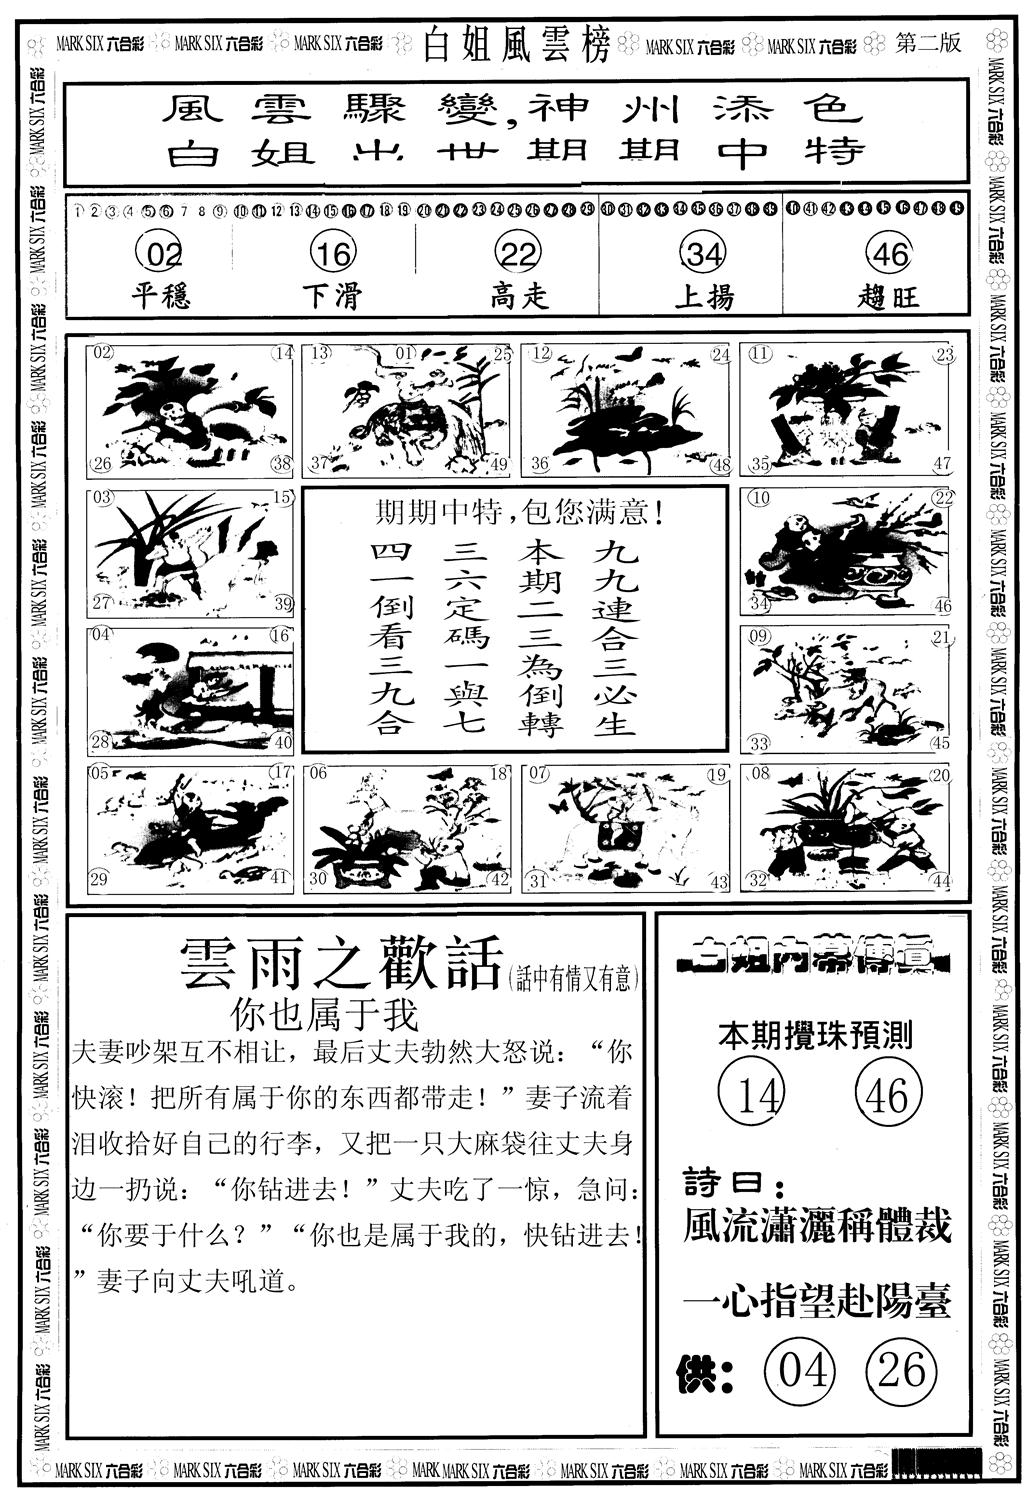 MARK SIX 六合彩 MARK SIX 六合彩 MARK SIX 六合彩 白姐風雲榜 MARK SIX 六合彩 MARK SIX 六合彩 第二版
風雲驟變,神州添色
白姐出世期期中特
1 2 3 4 5 6 7 8 9 10 11 12 13 14 15 16 17 18 19 20 21 22 23 24 25 26 27 28 29 30 31 32 33 34 35 36 37 38 39 40 41 42 43 44 45 46 47 48 49
02 16 22 34 46
平穩 下滑 高走 上揚 趨旺
02 14 13 01 25 12 24 11 23
26 38 37 49 36 48 35 47
03 15
27 39
04 16
28 40
期期中特,包您满意!
九九連合三必生
本期二三為倒轉
三六定碼一與七
四一倒看三九合
10 22
34 46
09 21
33 45
05 17 06 18 07 19 08 20
29 41 30 42 31 43 32 44
雲雨之歡話(話中有情又有意)
你也属于我
夫妻吵架互不相让，最后丈夫勃然大怒说：“你
快滚！把所有属于你的东西都带走！”妻子流着
泪收拾好自己的行李，又把一只大麻袋往丈夫身
边一扔说：“你钻进去！”丈夫吃了一惊，急问：
“你要于什么？”“你也是属于我的，快钻进去！
”妻子向丈夫吼道。
白姐内幕傳真
本期攪珠預測
14 46
詩曰：
風流瀟灑稱體裁
一心指望赴陽臺
供： 04 26
MARK SIX 六合彩 MARK SIX 六合彩 MARK SIX 六合彩 MARK MARK SIX 六合彩 MARK SIX 六合彩 MARK SIX 六合彩 MARK SIX 六合彩